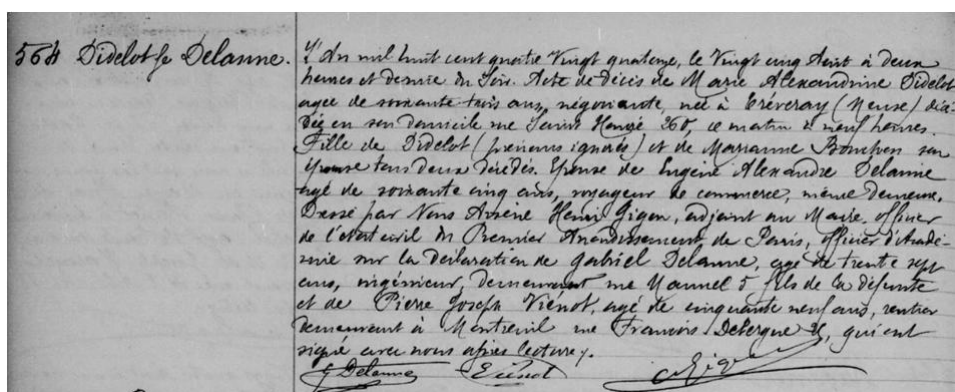 564 Didelot fe Delanne.
L'An mil huit cent quatre Vingt quatorze, le Vingt cinq Aout à deux
heures et demie du Soir. Acte de décès de Marie Alexandrine Didelot
agée de soixante trois ans, négociante, née à Tréveray (Meuse) décé-
dée en son domicile rue Saint Honoré 360, ce matin à neuf heures.
Fille de Didelot (prénoms ignorés) et de Marianne Bouchon son
épouse tous deux décédés. Epouse de Eugène Alexandre Delanne
agé de soixante cinq ans, voyageur de commerce, même demeure.
Dressé par Nous Arsène Henri Gigon, adjoint au Maire, officier
de l'état civil du Premier Arrondissement de Paris, officier d'Acadé-
mie sur la déclaration de Gabriel Delanne, agé de trente sept
ans, ingénieur, demeurant rue Manuel 5 fils de la défunte
et de Pierre Joseph Viénot, agé de cinquante neuf ans, rentier
demeurant à Montreuil rue François Debergue, qui ont
signé avec nous après lecture.
G Delanne